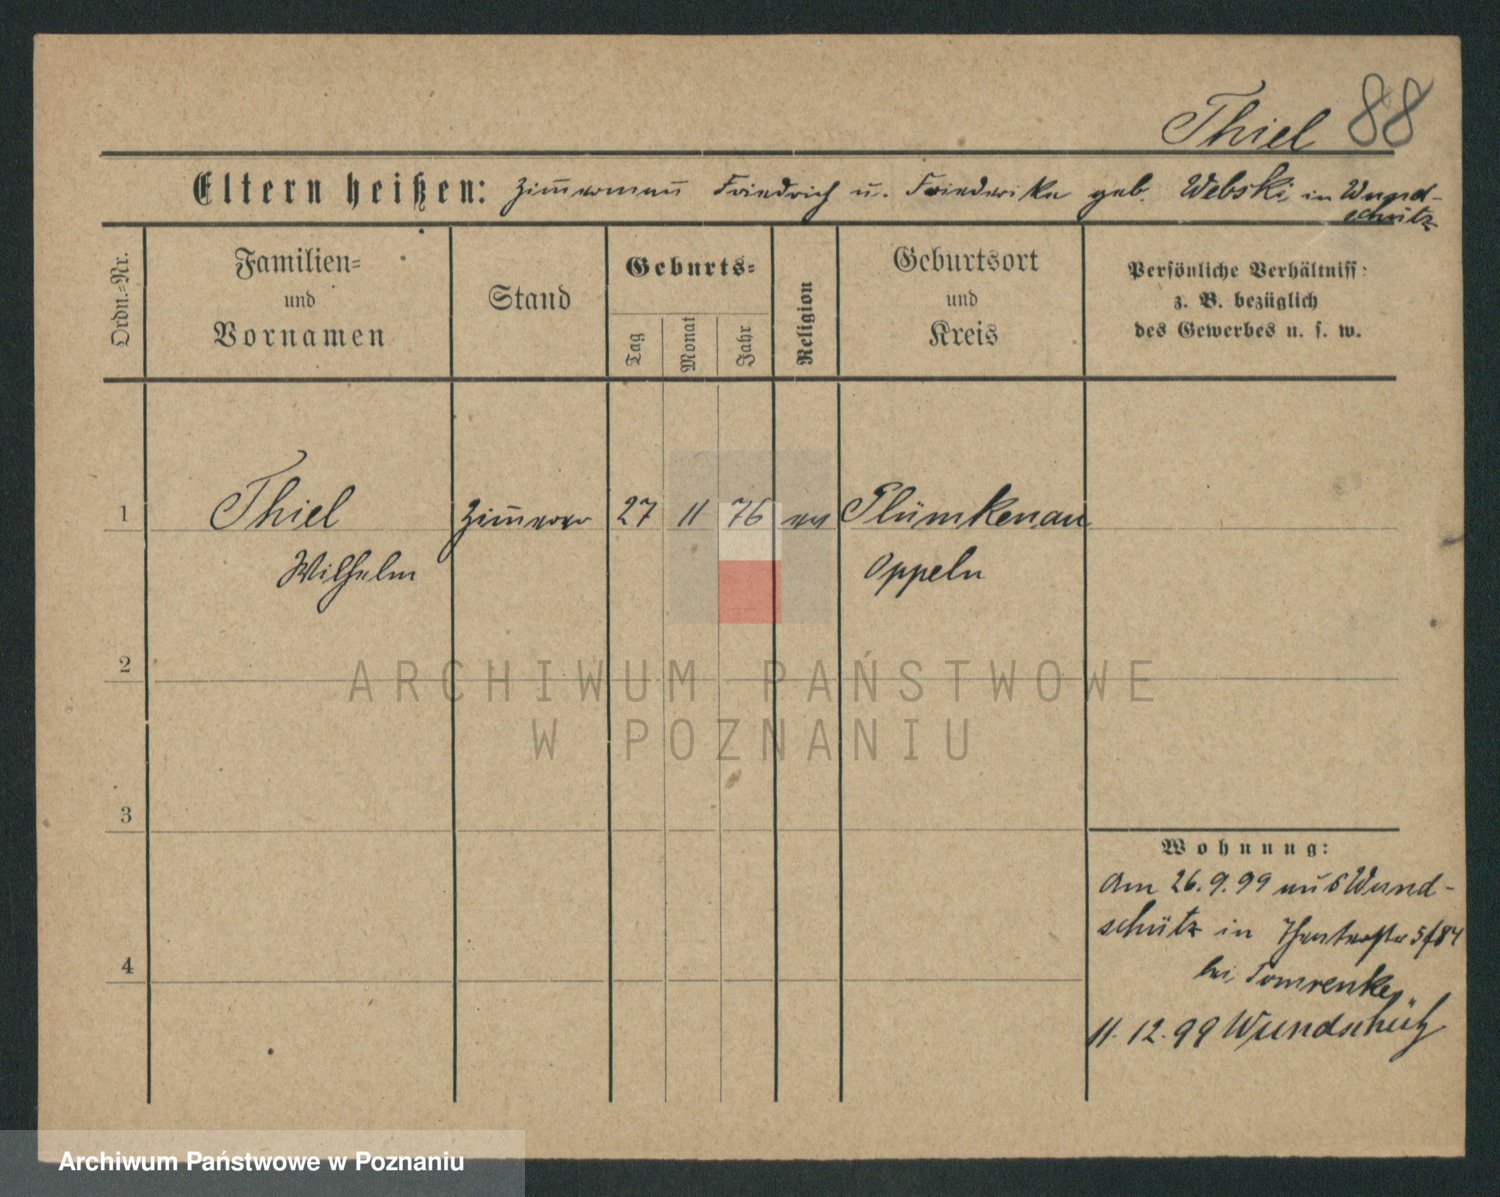 Thiel 88
Eltern heißen: Zimmerman Friedrich u. Friederike geb. Webski in Wund-
schütz
Ordn.-Nr.
Familien-
und
Vornamen
Stand
Geburts-
Tag
Monat
Jahr
Religion
Geburtsort
und
Kreis
Persönliche Verhältniss:
z. B. bezüglich
des Gewerbes u. s. w.
1 Thiel Zimmerer 27 11 76 ev Plümkenau
Wilhelm Oppeln
2
3
4
Wohnung:
Am 26.9.99 aus Wund-
schütz in 5/84
bei
11.12.99 Wundschütz
ARCHIWUM PAŃSTWOWE
W POZNANIU
Archiwum Państwowe w Poznaniu